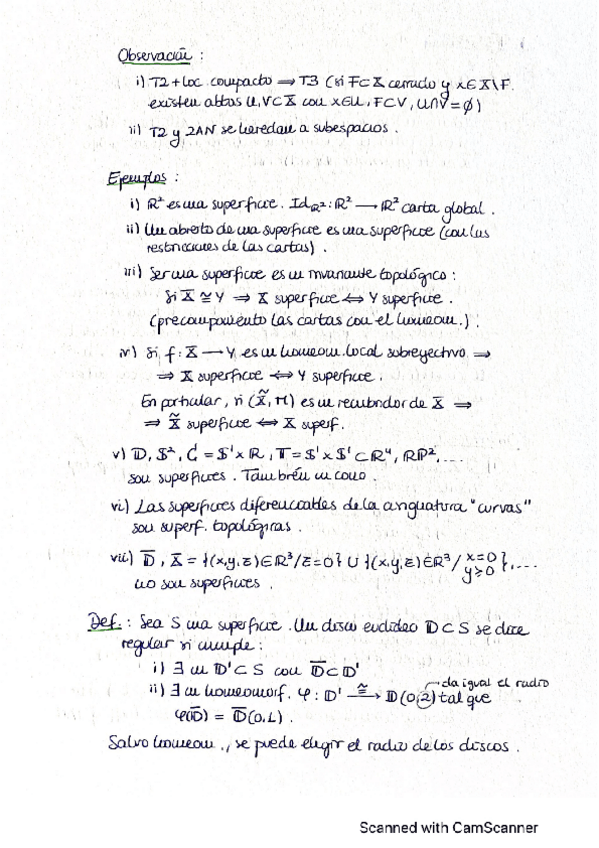 Observación :
i) T2 + loc. compacto ⟹ T3 (si F⊂X cerrado y x∈X\F.
existen abtos U,V⊂X con x∈U, F⊂V, U∩V=∅)
ii) T2 y 2AN se heredan a subespacios.
Ejemplos :
i) ℝ² es una superficie. Id_ℝ² : ℝ² ⟶ ℝ² carta global.
ii) Un abierto de una superficie es una superficie (con las
restricciones de las cartas).
iii) Ser una superficie es un invariante topológico :
Si X ≅ Y ⟹ X superficie ⟺ Y superficie.
(precomponiendo las cartas con el homeom.).
iv) Si f: X ⟶ Y, es un homeom. local sobreyectivo ⟹
⟹ X superficie ⟺ Y superficie.
En particular, si (X̃, π) es un recubridor de X ⟹
⟹ X̃ superficie ⟺ X superf.
v) 𝔻, 𝕊², C = 𝕊¹×ℝ, 𝕋 = 𝕊¹×𝕊¹⊂ℝ⁴, ℝℙ², ...
son superficies. También un cono.
vi) Las superficies diferenciables de la asignatura "curvas"
son superf. topológicas.
vii) 𝔻̅, X = {(x,y,z)∈ℝ³/z=0} ∪ {(x,y,z)∈ℝ³/ x=0 y≥0}, ...
no son superficies.
Def.: Sea S una superficie. Un disco euclídeo 𝔻⊂S se dice
regular si cumple :
i) ∃ un 𝔻'⊂S con 𝔻̅⊂𝔻'
ii) ∃ un homeomorf. φ: 𝔻' ≅⟶ 𝔻(0,2) tal que
da igual el radio
φ(𝔻̅) = 𝔻̅(0,1).
Salvo homeom., se puede elegir el radio de los discos.
Scanned with CamScanner